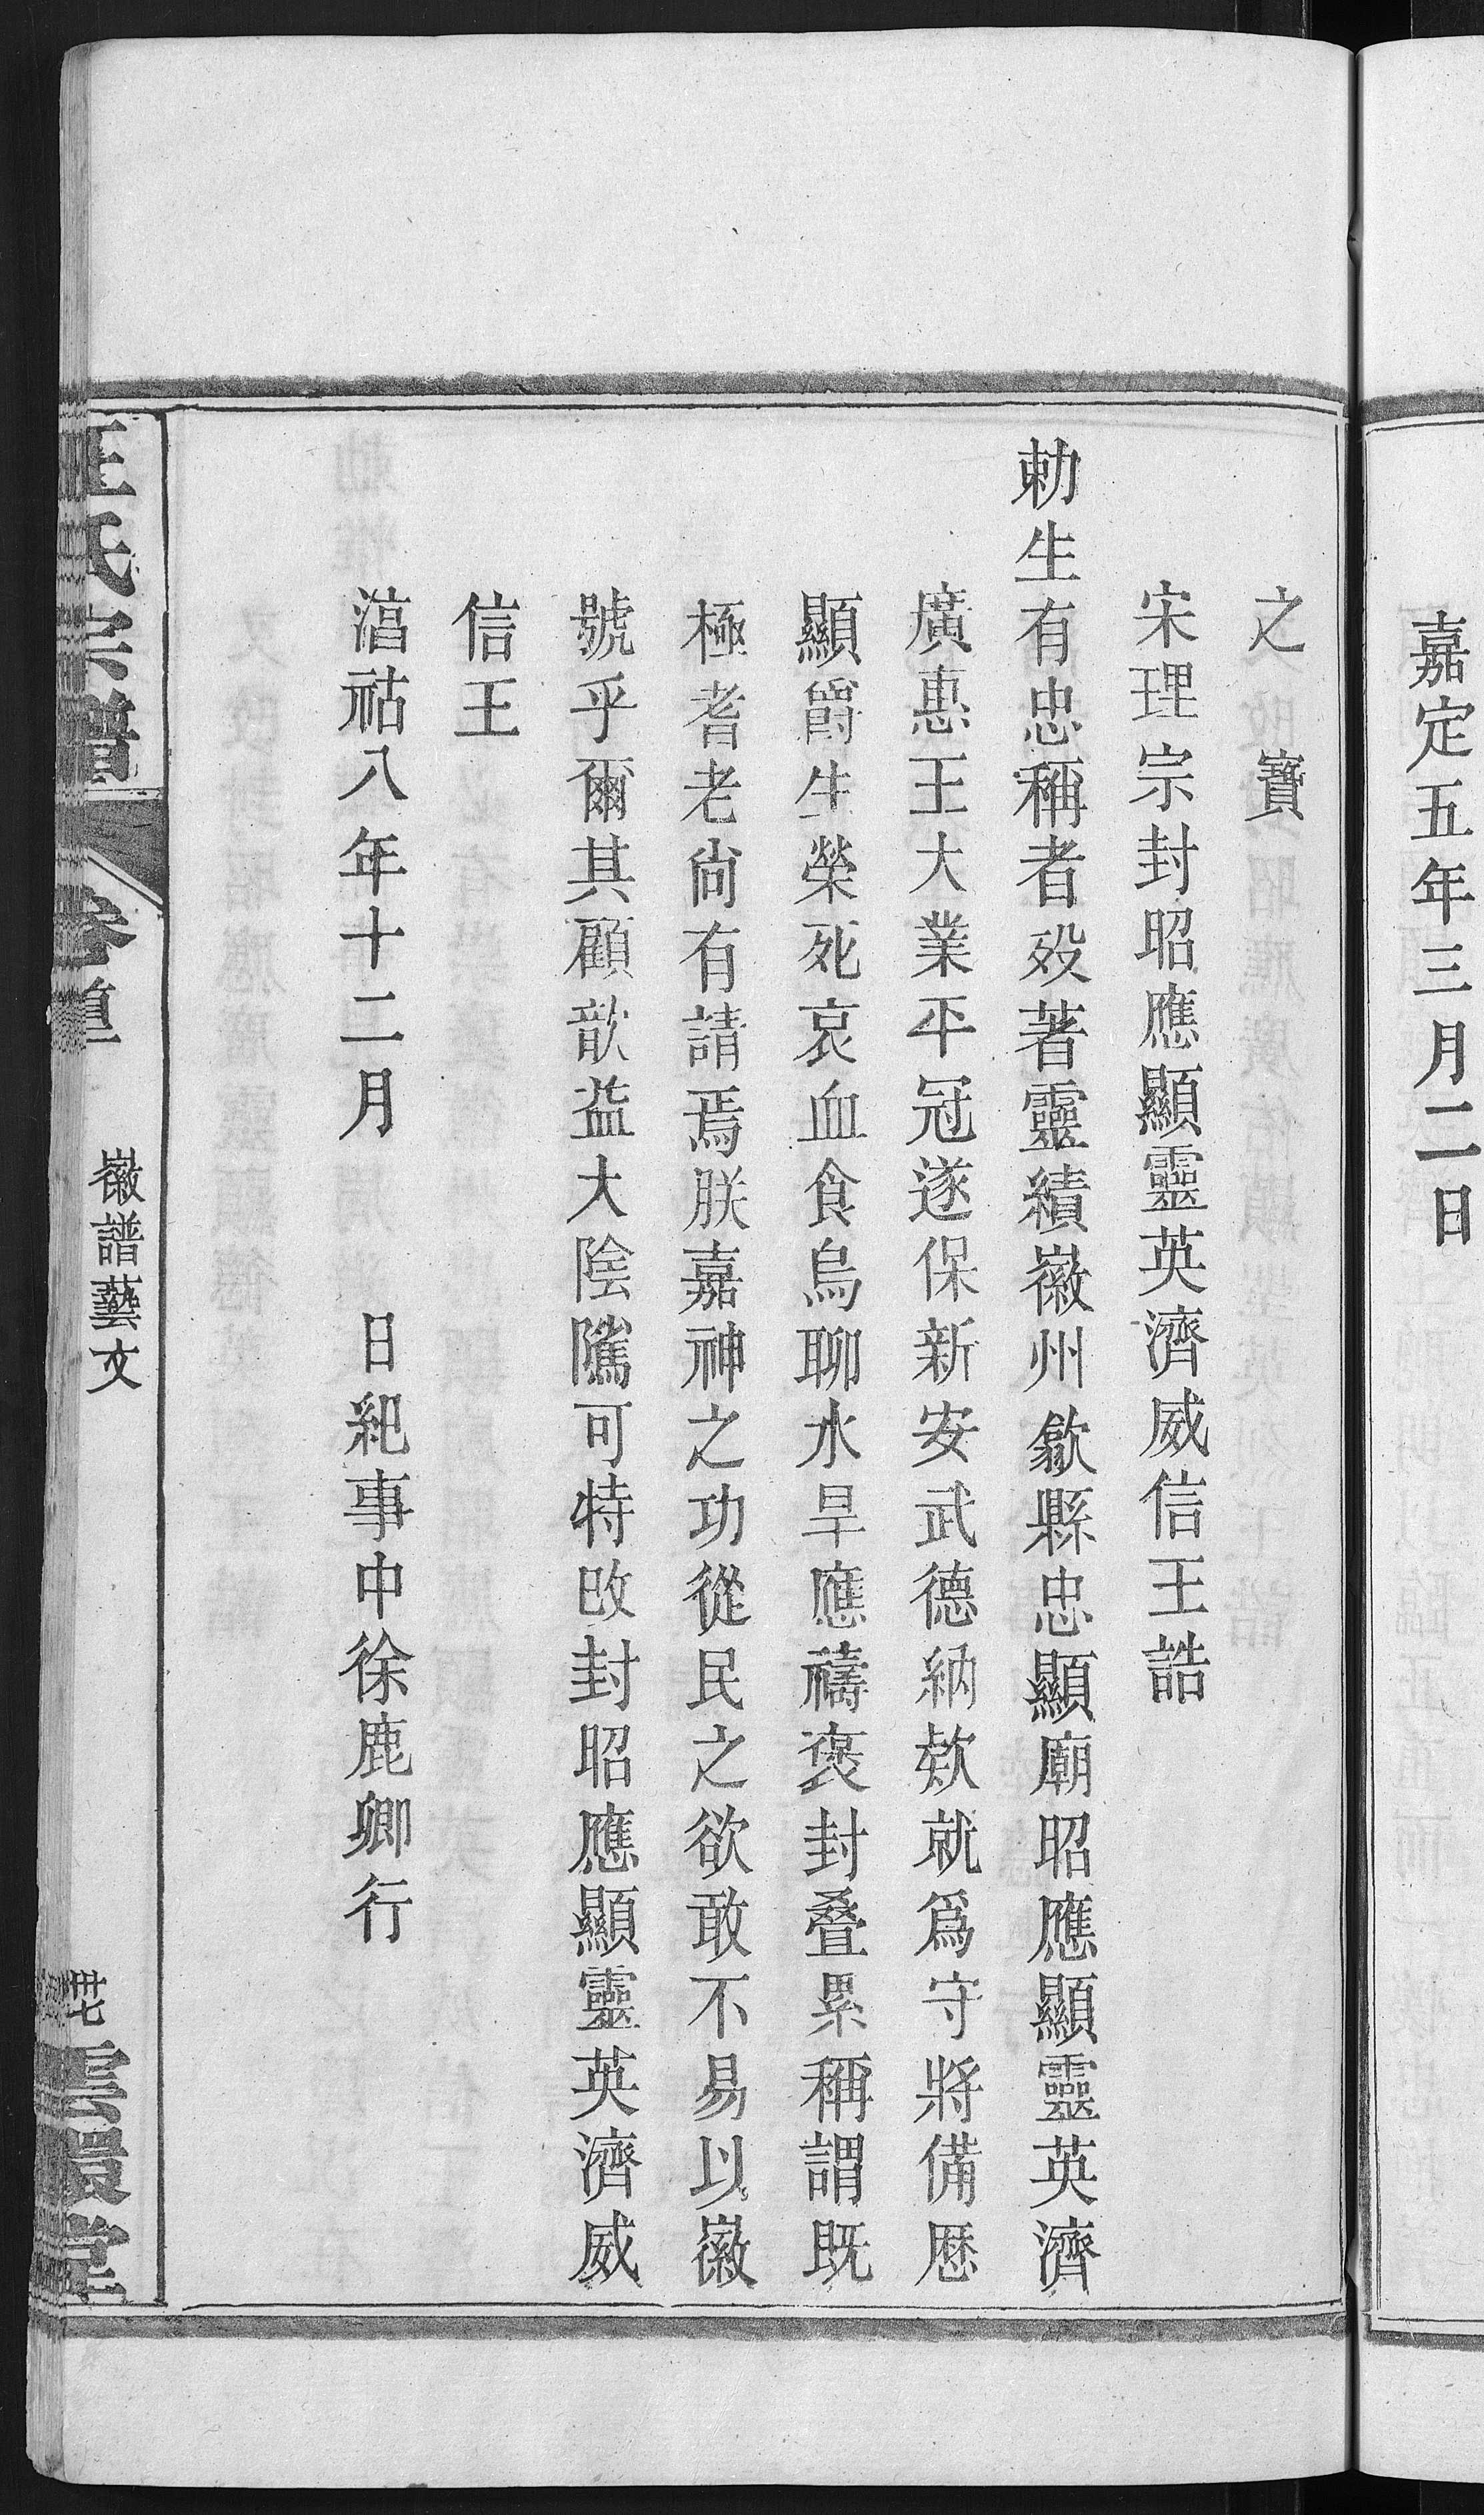 嘉定五年三月二日
之　寶
宋理宗封昭應顯靈英濟威信王誥
勅生有忠稱者殁著靈績徽州歙縣忠顯廟昭應顯靈英濟
廣惠王大業平冦遂保新安武德納欵就爲守將備歷
顯爵生榮死哀血食烏聊水旱應禱褒封叠累稱謂既
極耆老尚有請焉朕嘉神之功從民之欲敢不易以徽
號乎爾其顧歆益大陰隲可特改封昭應顯靈英濟威
信王
湻祐八年十二月　　日給事中徐鹿卿行
汪氏宗譜
卷首
徽譜藝文
卅七
雲
堂